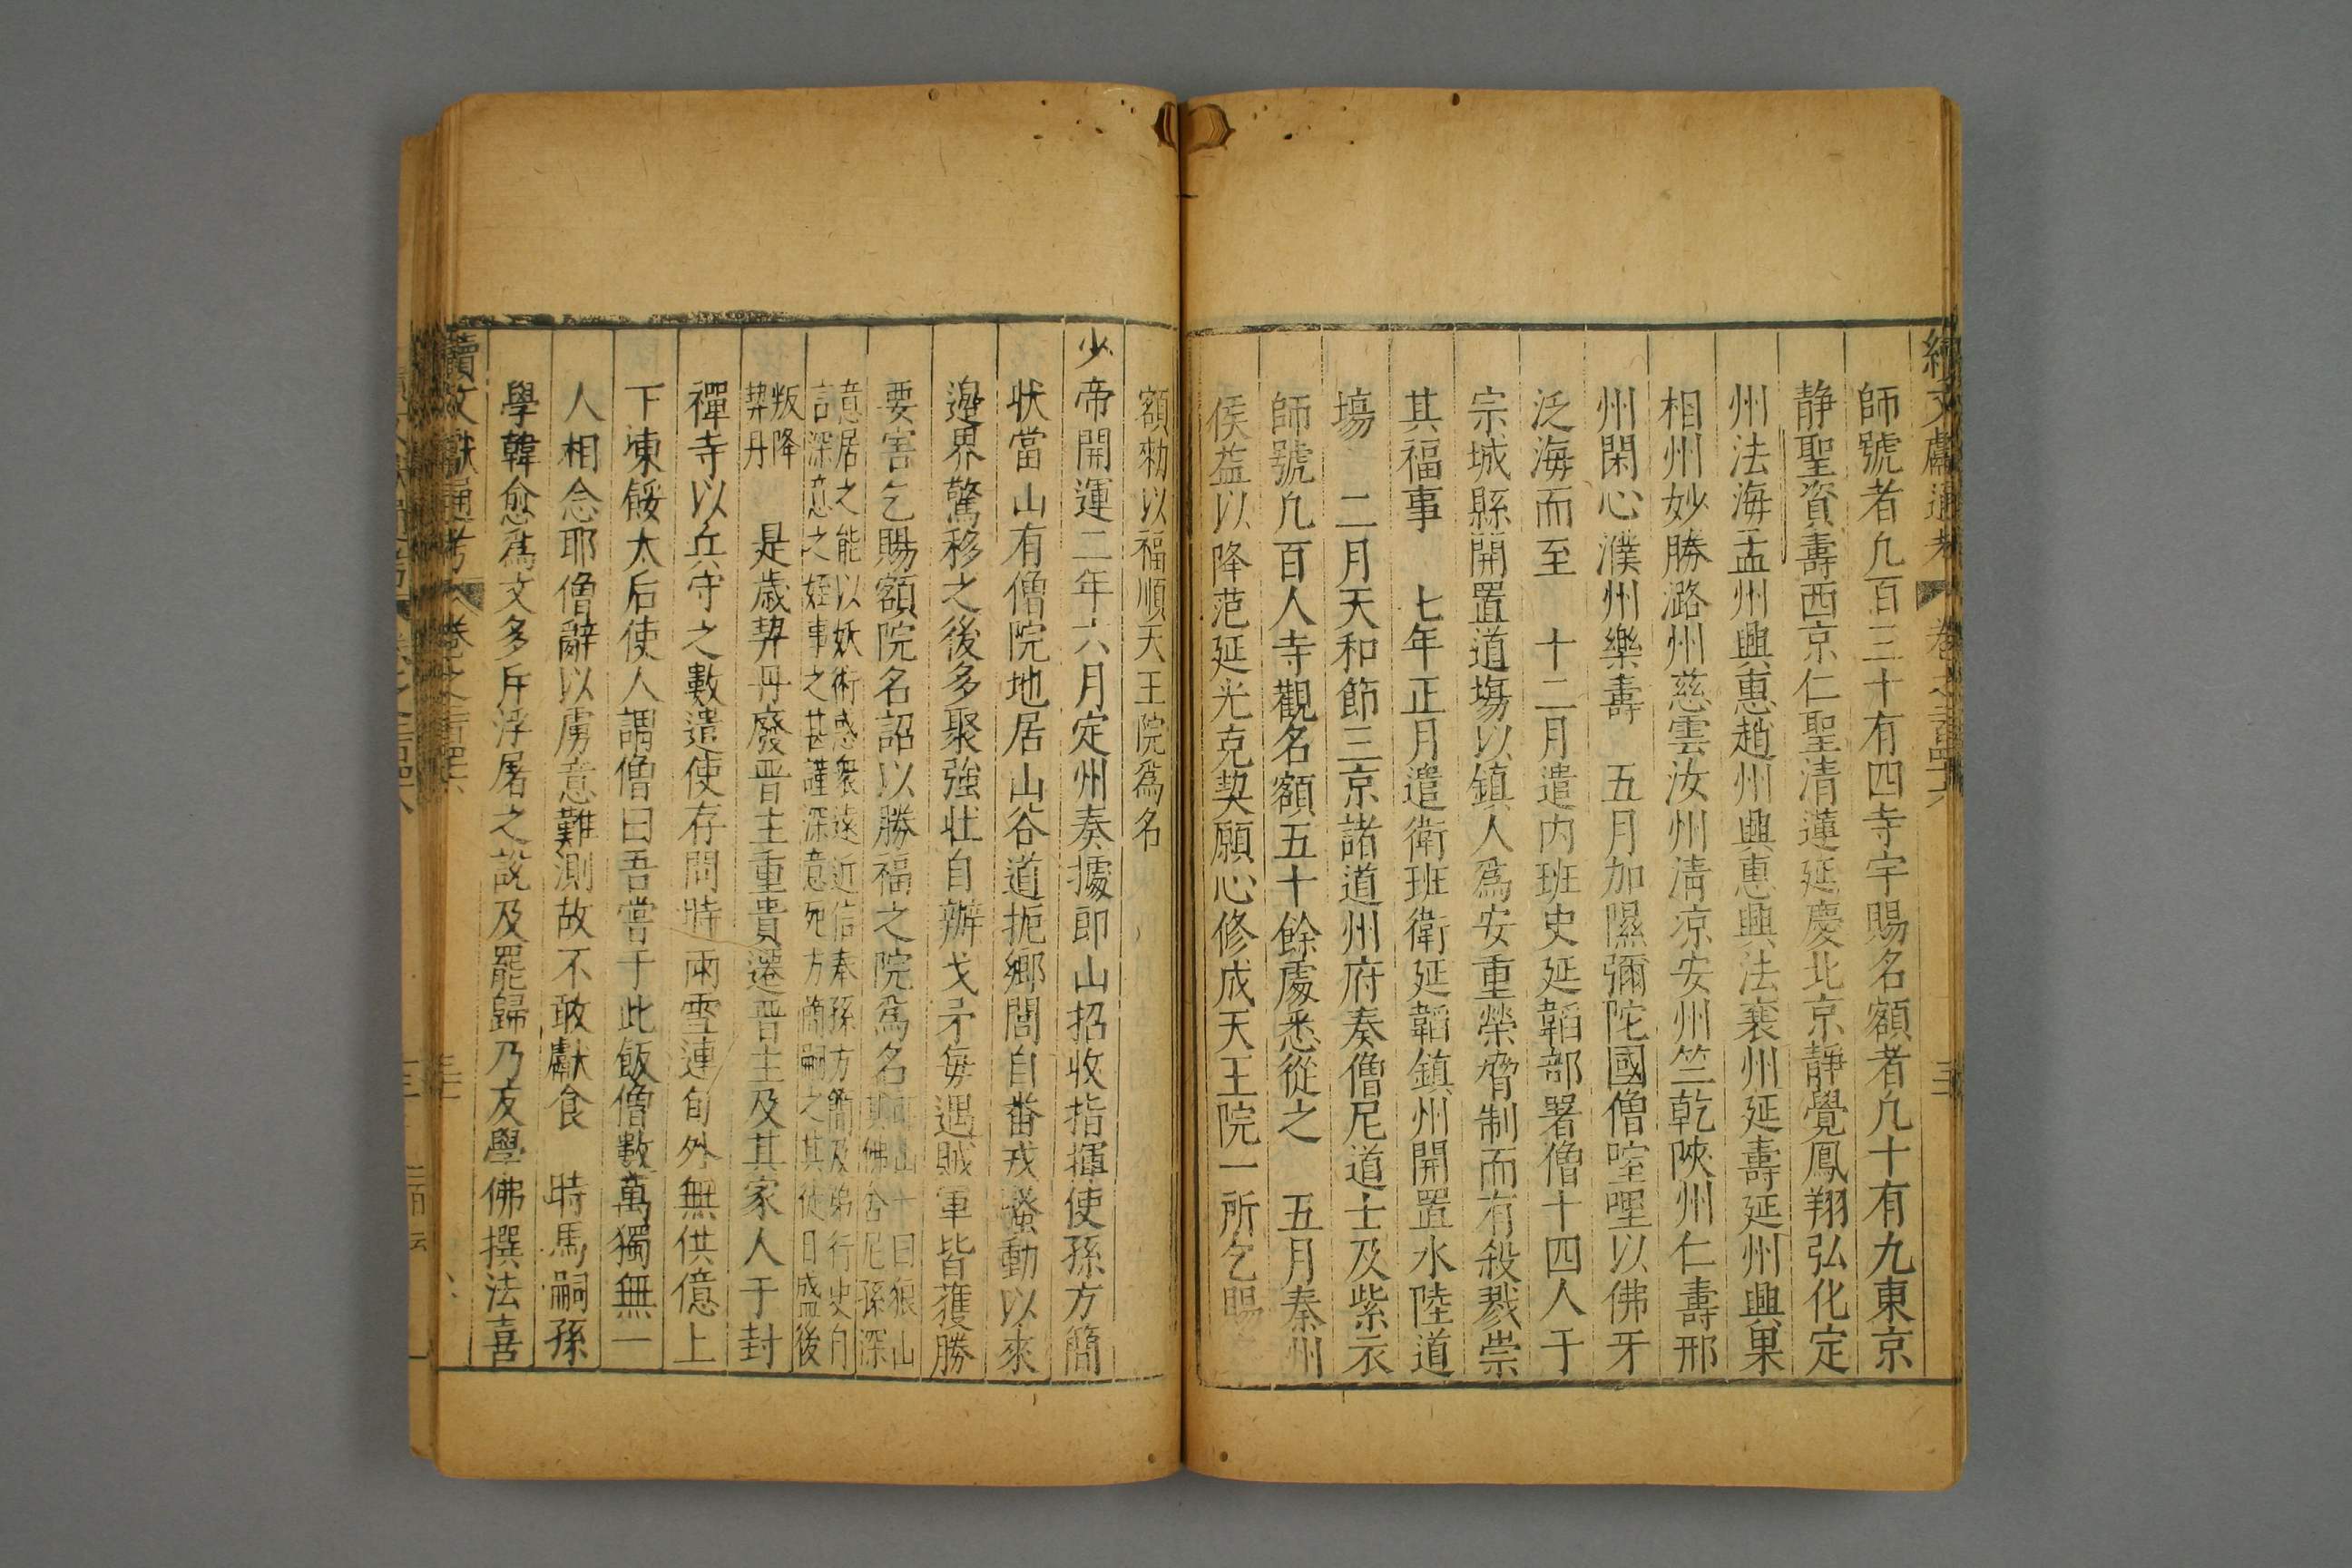 師號者凢百三十有四寺宇賜名額者凢十有九東京
静聖資壽西京仁聖清蓮延慶北京靜覺鳳翔弘化定
州法海孟州興惠趙州興惠興法襄州延壽延州興果
相州妙勝潞州慈雲汝州清凉安州竺乾陜州仁壽邢
州閑心濮州樂壽 五月加隰彌陀國僧㗌哩以佛牙
泛海而至 十二月遣内班史延韜部署僧十四人于
宗城縣開置道塲以鎮人爲安重榮脅制而有殺戮崇
其福事 七年正月遣衛班衛延韜鎮州開置水陸道
塲 二月天和節三京諸道州府奏僧尼道士及紫衣
師號凢百人寺觀名額五十餘處悉從之 五月秦州
侯益以降范延光克契願心修成天王院一所乞賜
額勑以福順天王院爲名
少帝開運二年六月定州奏據郎山招收指揮使孫方簡
状當山有僧院地居山谷道扼鄉閭自畨戎騷動以來
邉界驚移之後多聚強壮自辦戈矛毎遇賊軍皆獲勝
要害乞賜額院名詔以勝福之院爲名
意居之能以妖術惑衆遠近信奉孫方簡及弟行
言深意之姪事之甚謹深意死方簡嗣之其徒日盛後
叛降
契丹 是歳契丹廢晋主重貴遷晋主及其家人于封
禪寺以兵守之數遣使存問時雨雪連旬外無供億上
下凍餒太后使人謂僧曰吾嘗于此飯僧數萬獨無一
人相念耶僧辭以虜意難測故不敢獻食 時馬嗣孫
學韓愈爲文多斥浮屠之說及罷歸乃友學佛撰法喜
續文獻通考 卷之